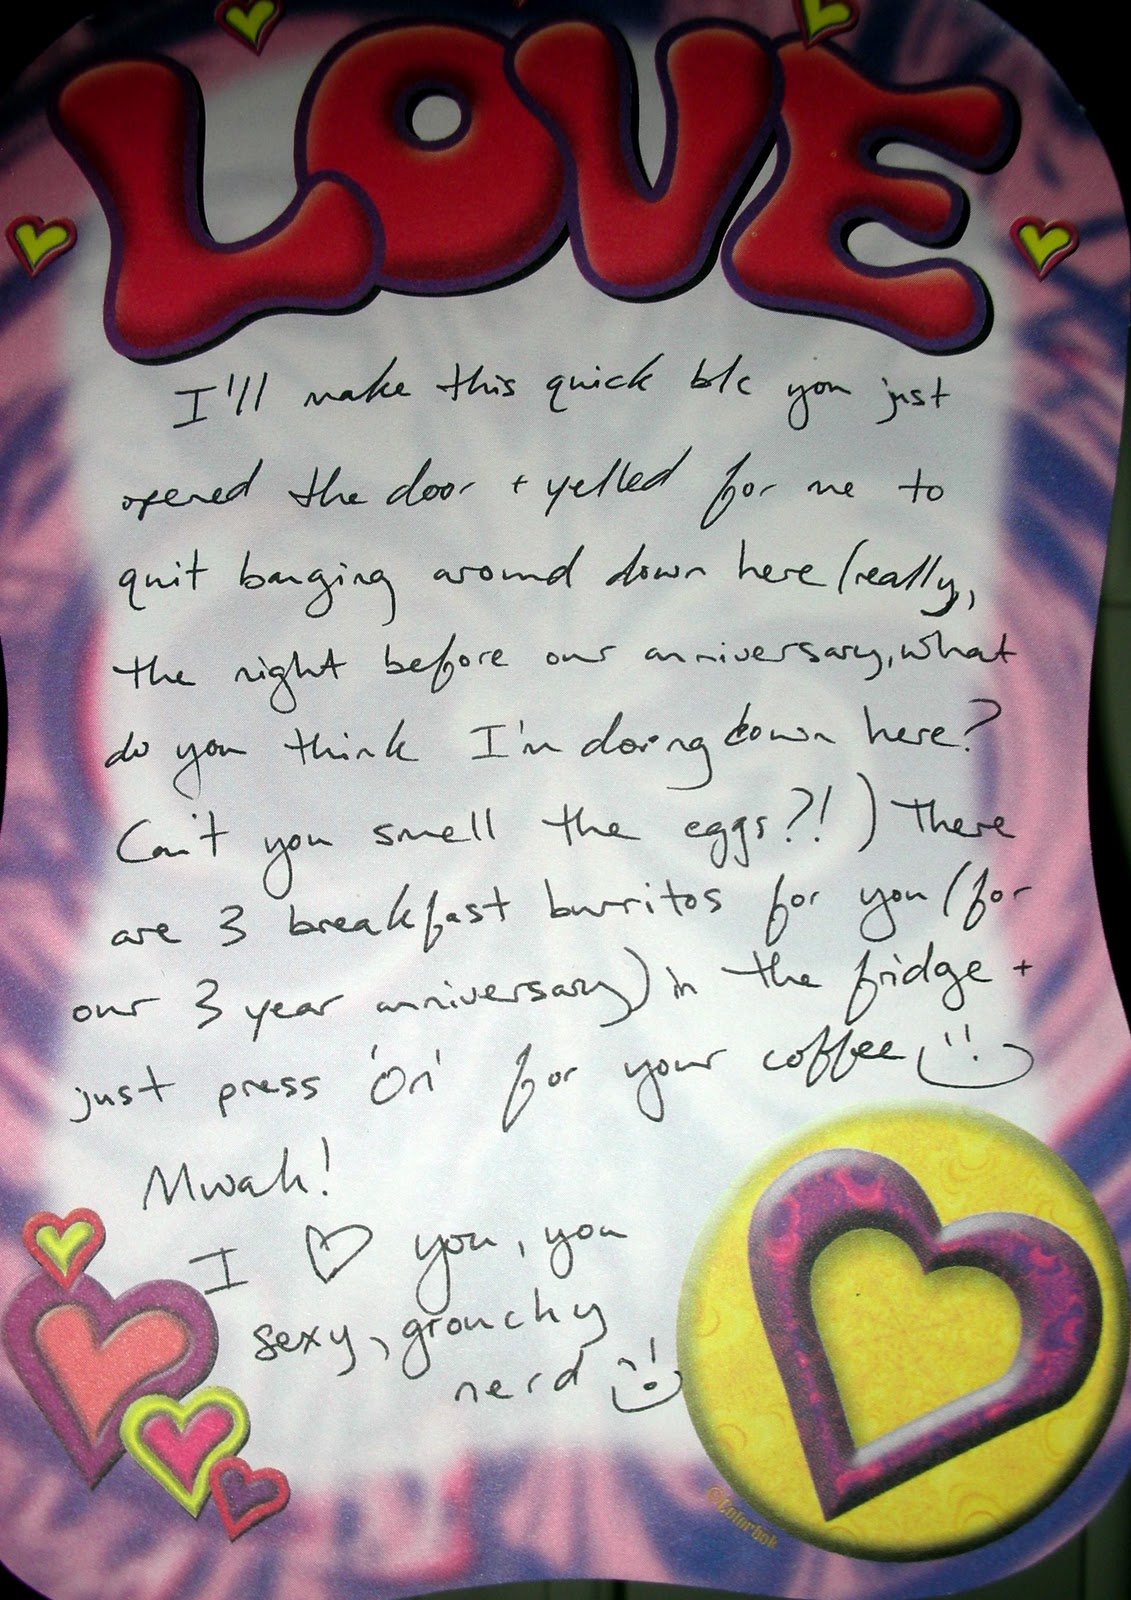 LOVE
I'll make this quick b/c you just
opened the door + yelled for me to
quit banging around down here (really,
the night before our anniversary, what
do you think I'm doing down here?
Can't you smell the eggs?!) There
are 3 breakfast burritos for you (for
our 3 year anniversary) in the fridge +
just press 'On' for your coffee
Mwah!
I ♡ you, you
sexy, grouchy
nerd
©Colorbok